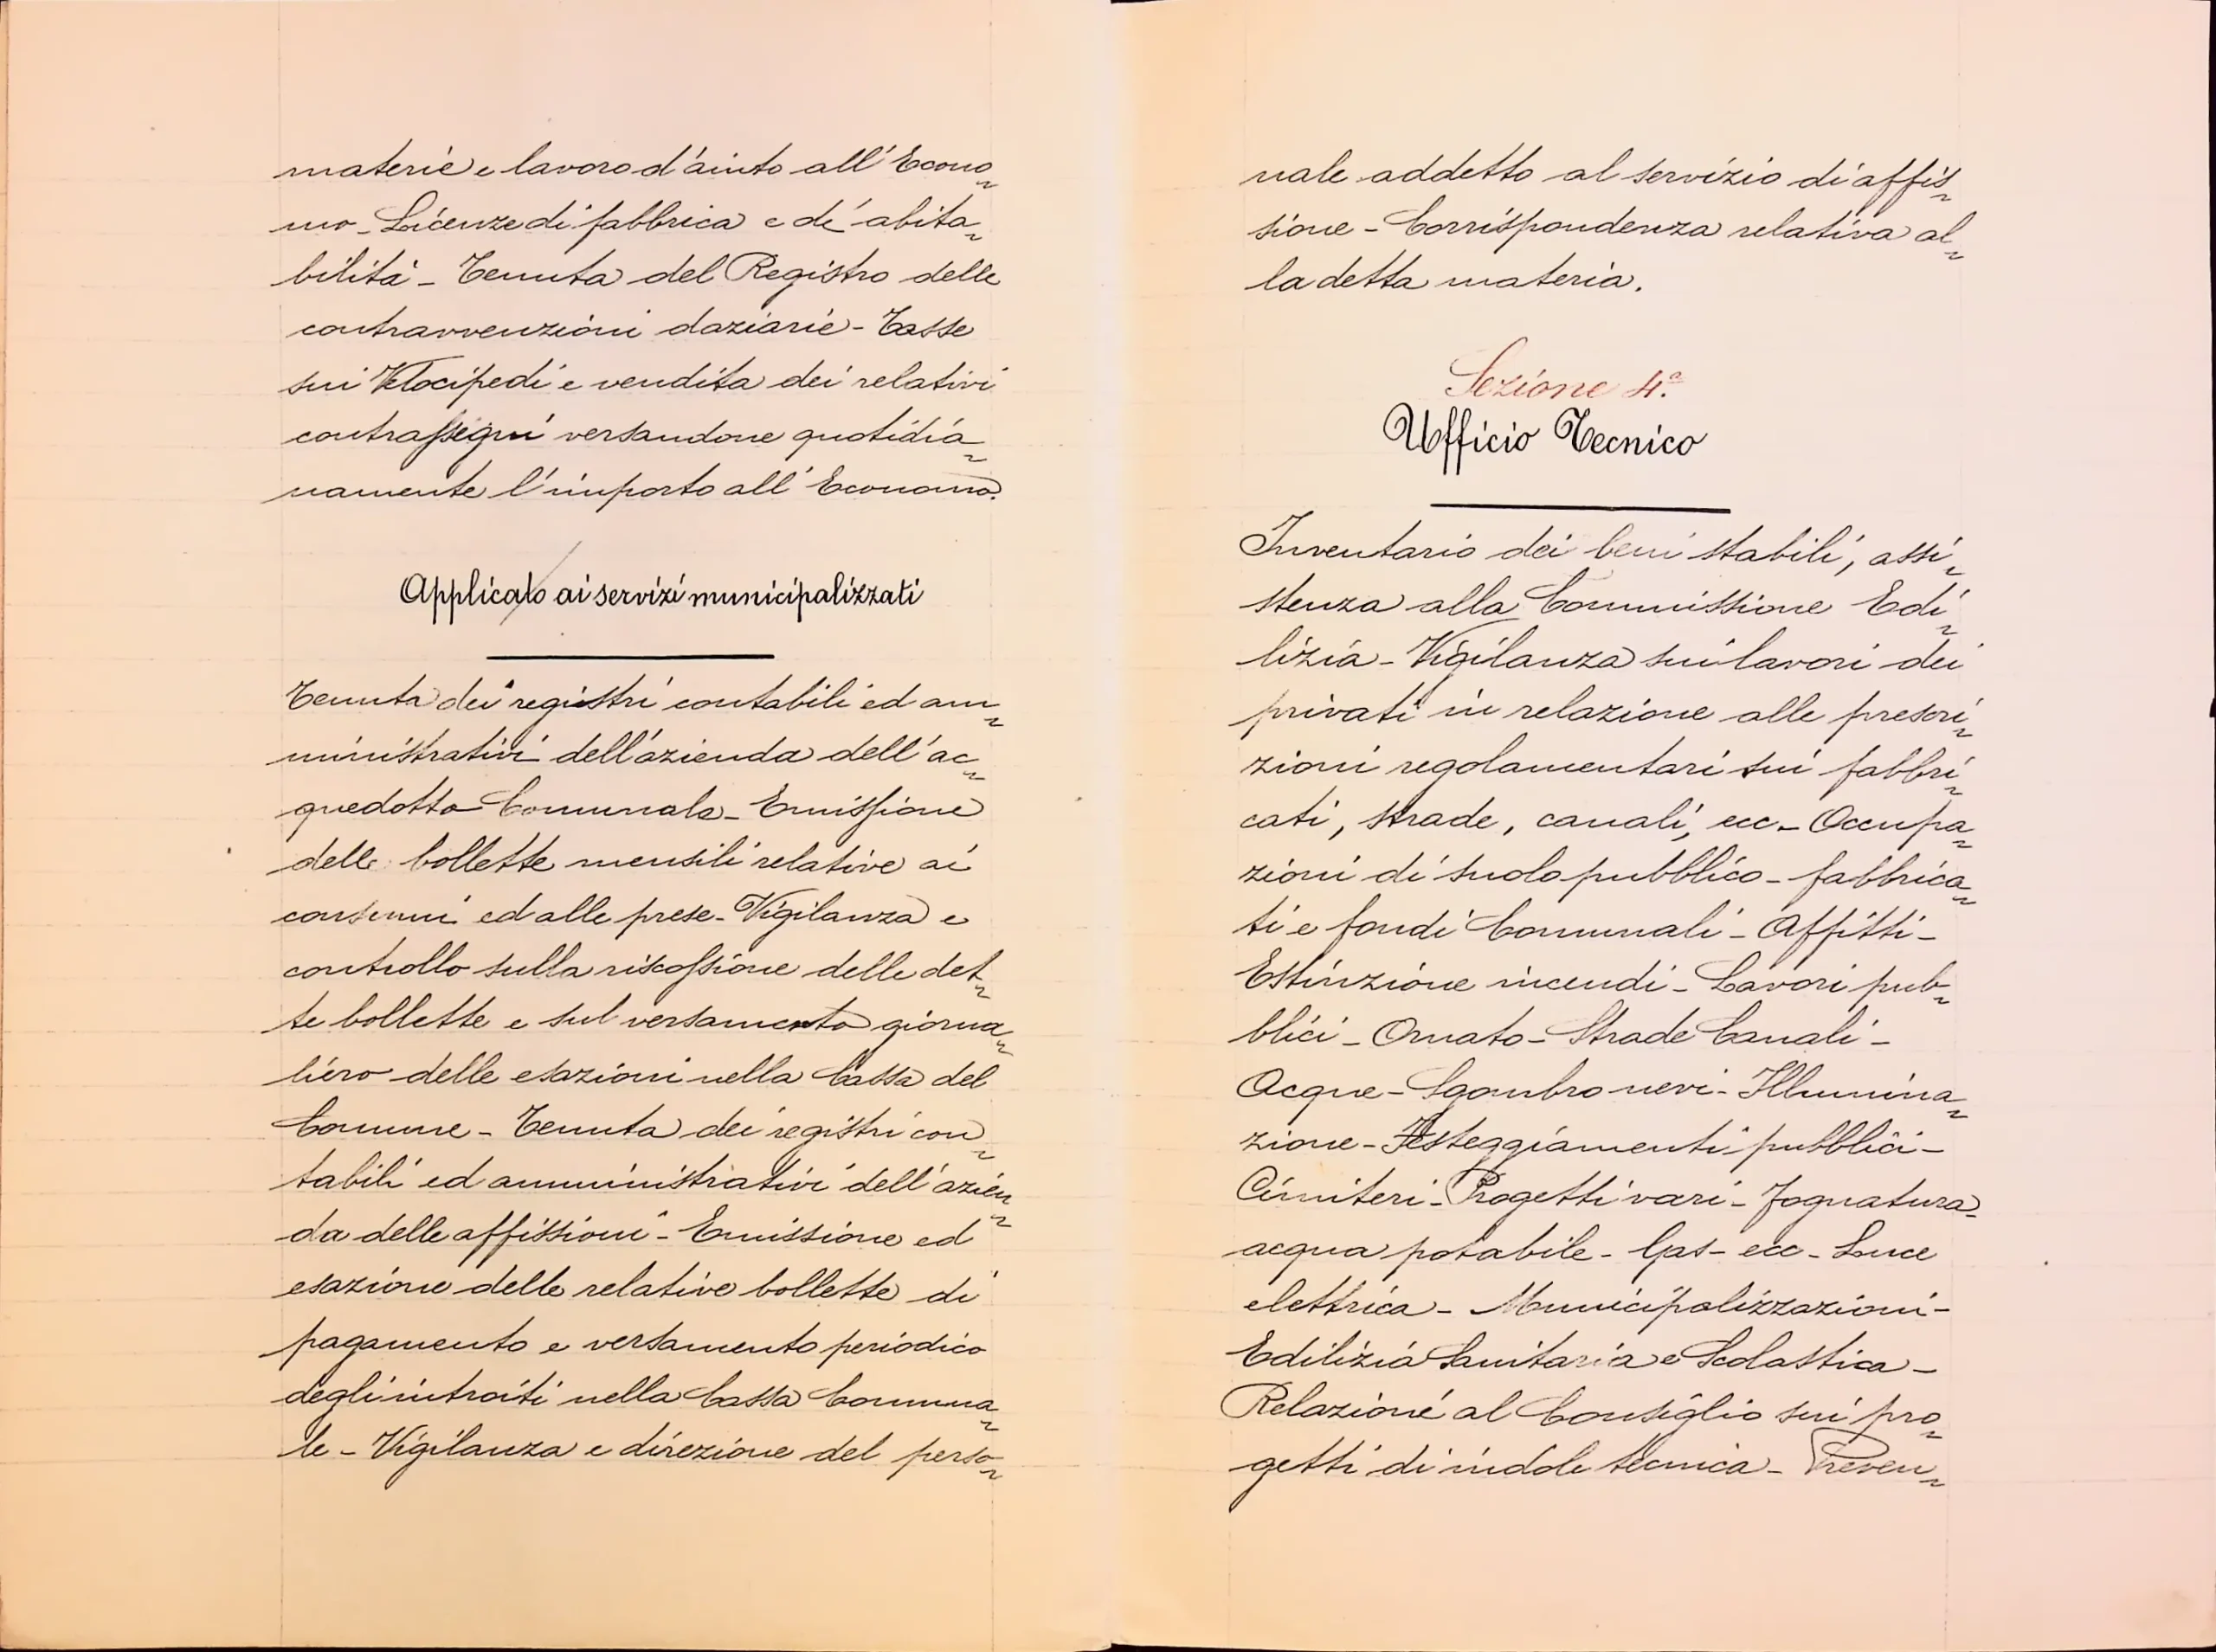 materie e lavoro d'aiuto all'Econo
mo - Licenze di fabbrica e di abita
bilità - Tenuta del Registro delle
contravvenzioni daziarie - Tasse
sui Velocipedi e vendita dei relativi
contrassegni versandone quotidia
namente l'importo all'Economo.
Applicato ai servizi municipalizzati
Tenuta dei registri contabili ed am
ministrativi dell'azienda dell'ac
quedotto Comunale - Emissione
delle bollette mensili relative ai
consumi ed alle prese - Vigilanza e
controllo sulla riscossione delle det
te bollette e sul versamento giorna
liero delle esazioni nella Cassa del
Comune - Tenuta dei registri con
tabili ed amministrativi dell'azien
da delle affissioni - Emissione ed
esazione delle relative bollette di
pagamento e versamento periodico
degli introiti nella Cassa Comuna
le - Vigilanza e direzione del perso
nale addetto al servizio di affis
sione - Corrispondenza relativa al
la detta materia.
Sezione 4ª
Ufficio Tecnico
Inventario dei beni stabili, assi
stenza alla Commissione Edi
lizia - Vigilanza sui lavori dei
privati in relazione alle prescri
zioni regolamentari sui fabbri
cati, strade, canali, ecc - Occupa
zioni di suolo pubblico - fabbrica
ti e fondi Comunali - Affitti -
Estinzione incendi - Lavori pub
blici - Ornato - Strade Canali -
Acque - Sgombro nevi - Illumina
zione - Festeggiamenti pubblici -
Cimiteri - Progetti vari - Fognatura -
acqua potabile - Gas - ecc - Luce
elettrica - Municipalizzazioni -
Edilizia Sanitaria e Scolastica -
Relazione al Consiglio sui pro
getti di indole tecnica - Preven